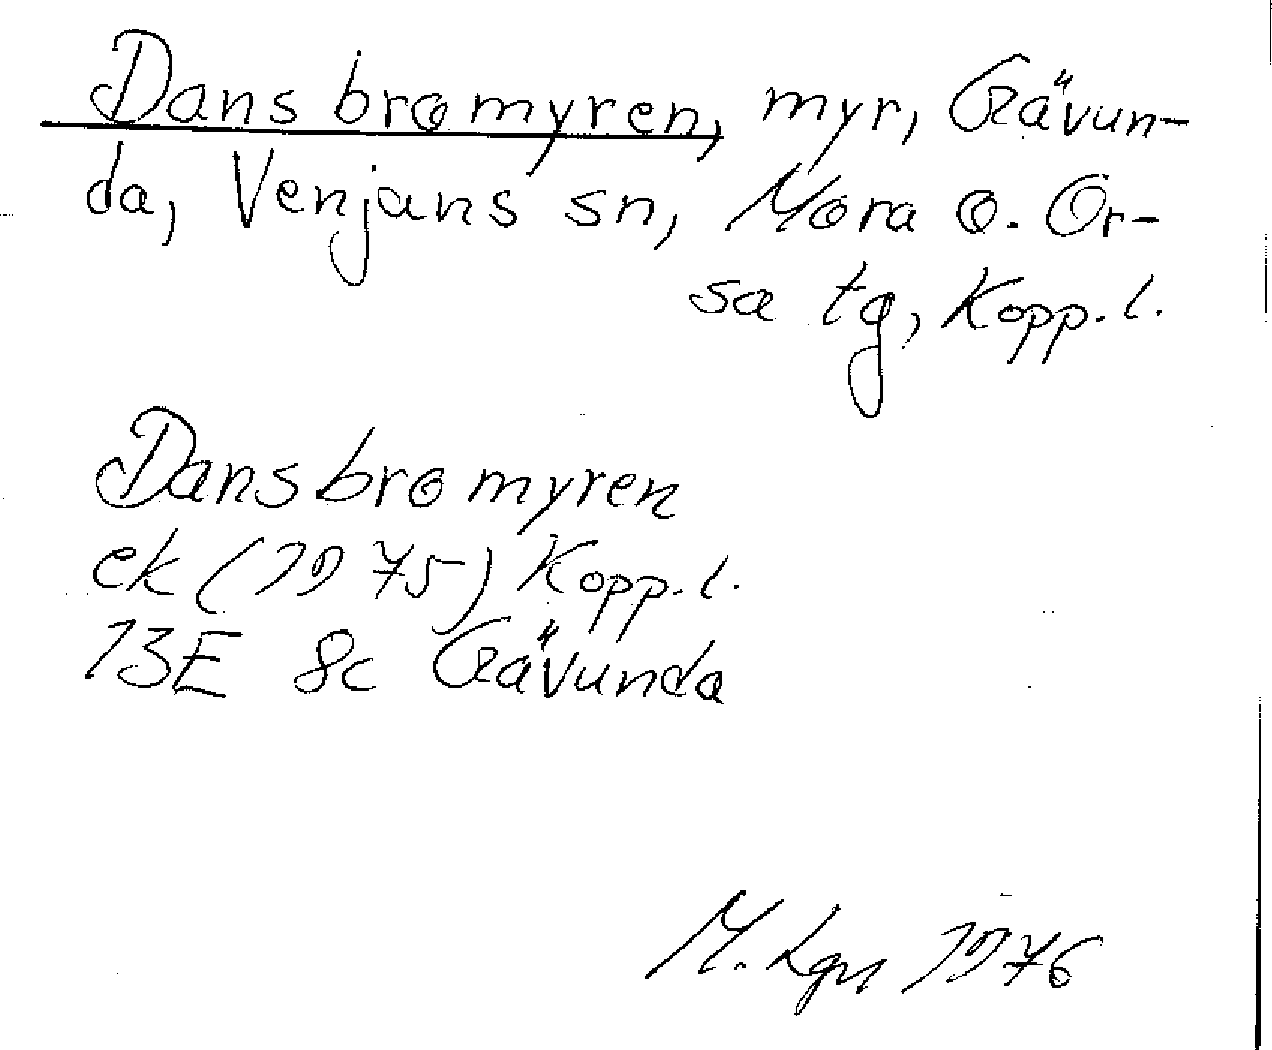 Dansbromyren, myr, Gävun-
da, Venjans sn, Mora o. Or-
sa tg, Kopp. l.
Dansbromyren
ek (1975) Kopp. l.
13E 8c Gävunda
M. Lgn 1976